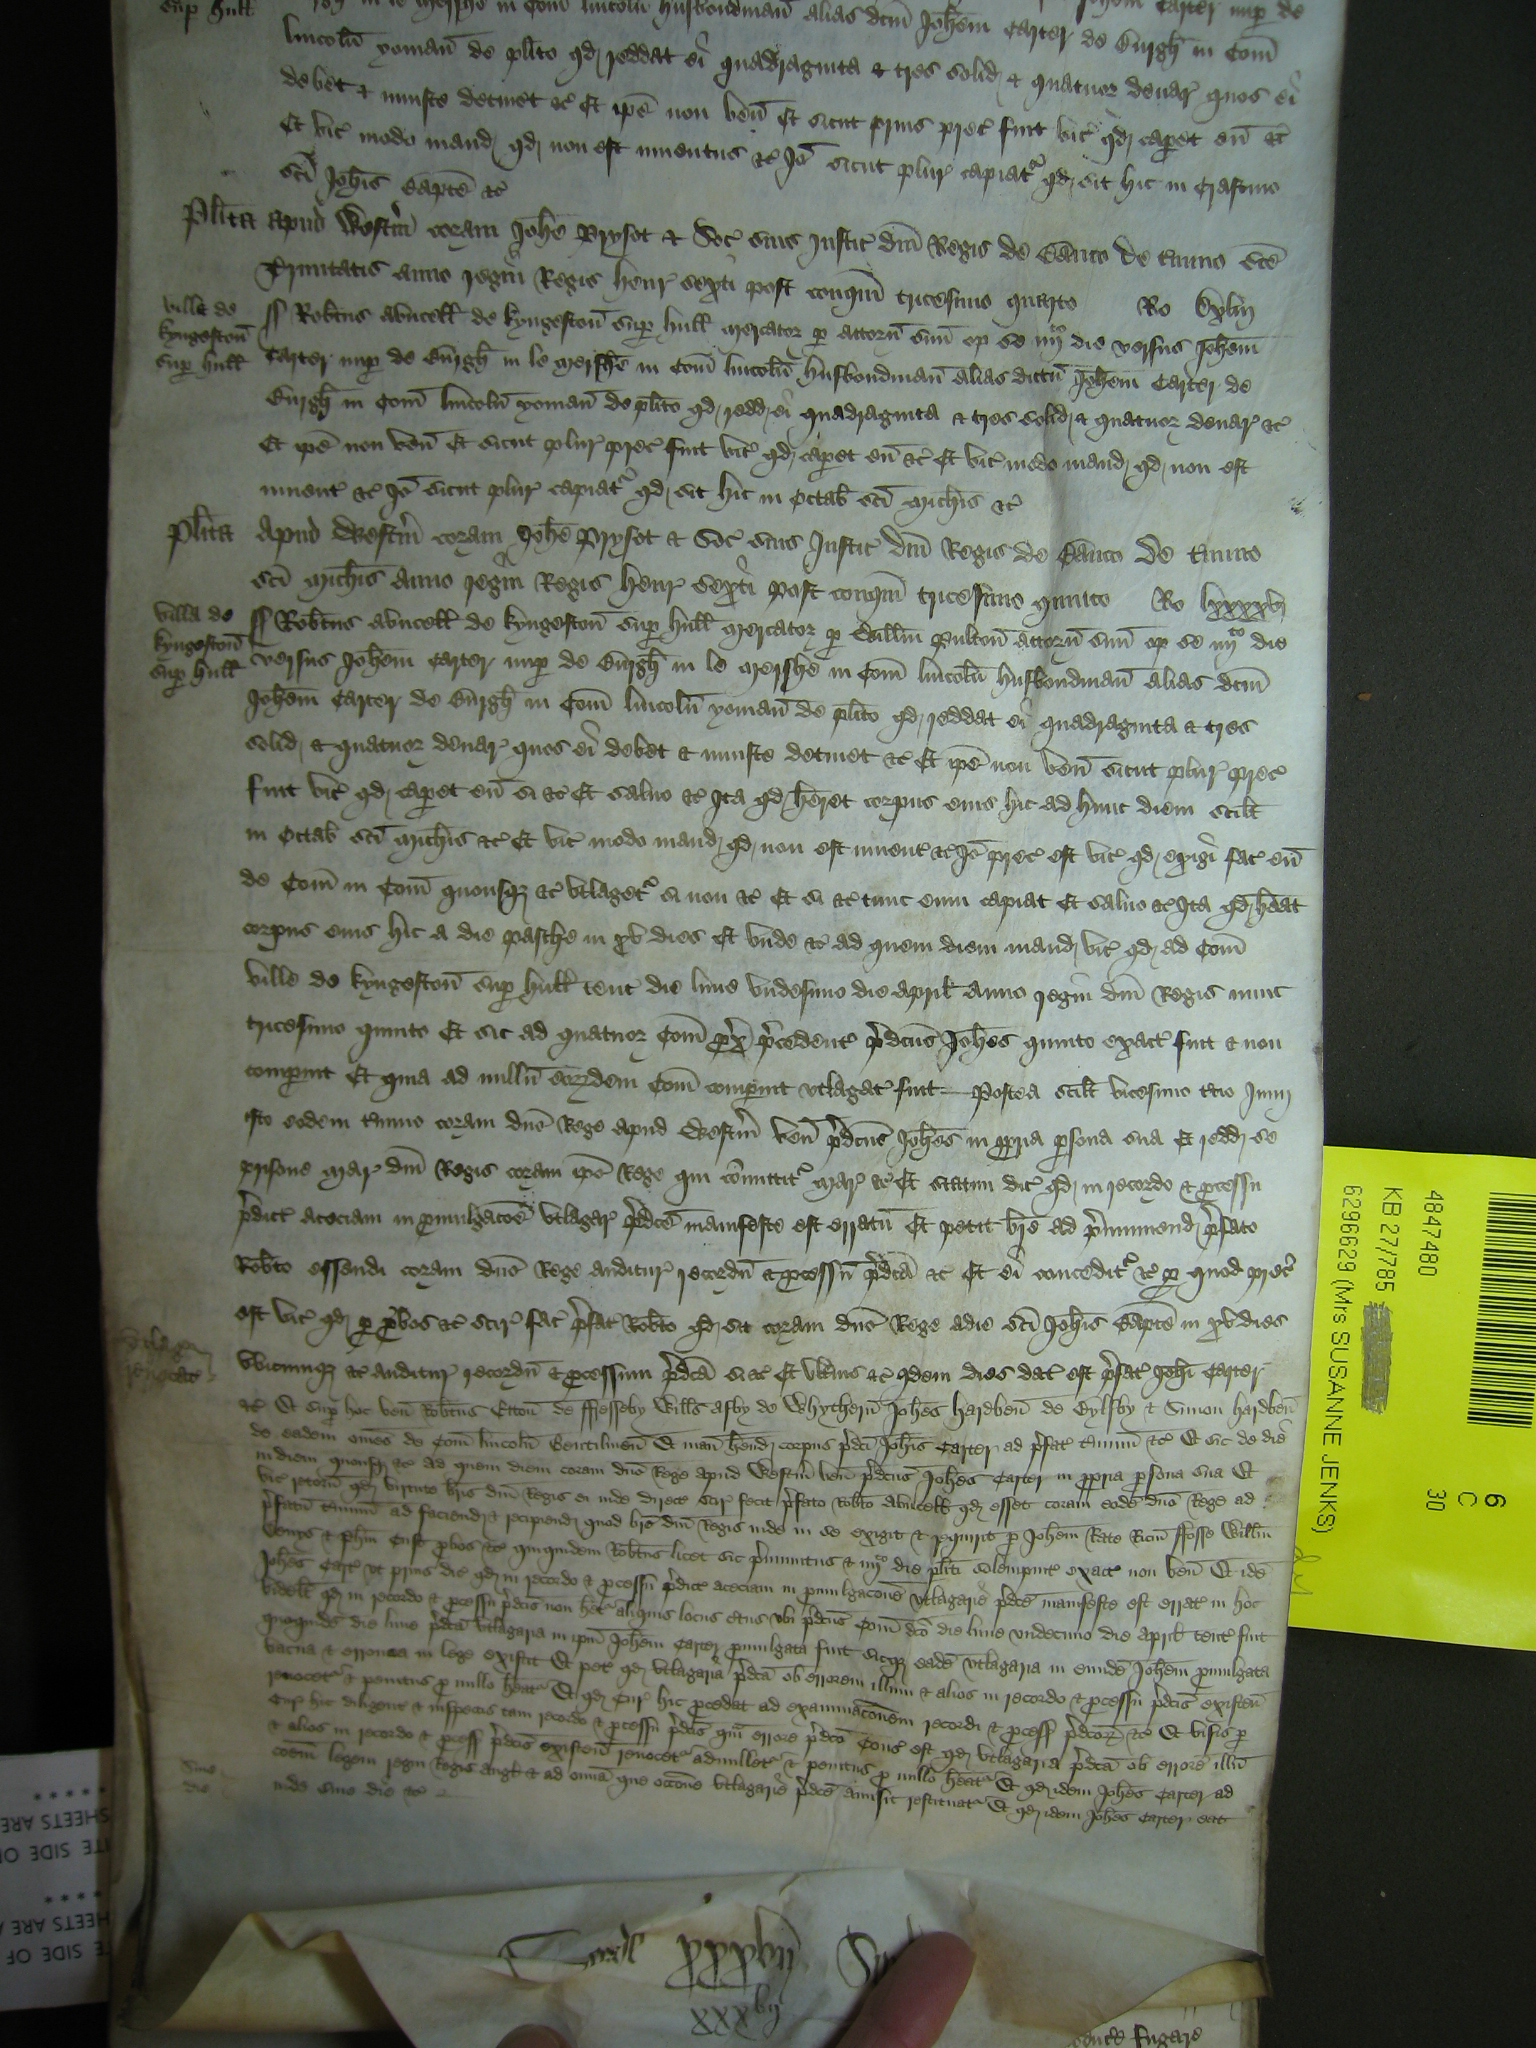 sup Hull
in le Mersshe in Com lincoln husbondman alias dcm Johem Carter de Burgh in Com
lincoln yoman de plito qd reddat ei quadraginta & tres solid & quatuor denar quos ei
debet & iniuste detinet &c Et ipe non ven Et sicut prius prec fuit vic qd caperet eu &c
Et vic modo mand qd non est inuentus &c Io sicut plur capiatr qd sit hic in Crastino
sci Johis Bapte &c
Plita apud Westm coram Johe Prysot & Soc suis Justic dni Regis de Banco de t'mino sce
Trinitatis anno regni Regis henr sexti post conqm tricesimo quarto Ro
villa de
kyngeston
sup hull
ss Robtus Auncell de kyngeston sup hull mercator p attorn suu op se iiijto die versus Johem
Carter nup de Burgh in le mersshe in Com lincoln husbondman alias dictu Johem Carter de
Burgh in Com lincoln yoman de plito qd redd ei quadraginta & tres solid & quatuor denar &c
Et ipe non ven Et sicut plur prec fuit vic qd caperet eu &c Et vic modo mand qd non est
inuent &c Io sicut plur capiatr qd sit hic in Octab sci Michis &c
Plita Apud Westm coram Johe Prysot & Soc suis Justic dni Regis de Banco de t'mino
sci Michis Anno regni Regis henr sexti post conqm tricesimo quinto Ro
villa de
kyngeston
sup hull
ss Robtus Auncell de kyngeston sup hull mercator p Willm Pulton attorn suu op se iiijto die
versus Johem Carter nup de Burgh in le mersshe in Com lincoln husbondman alias dcm
Johem Carter de Burgh in Com lincoln yoman de plito qd reddat ei quadraginta & tres
solid & quatuor denar quos ei debet & iniuste detinet &c Et ipe non ven sicut plur prec
fuit vic qd caperet eu si &c Et saluo &c Ita qd heret corpus eius hic ad hunc diem scilt
in Octab sci Michis &c Et vic modo mand qd non est inuent &c Io prec est vic qd exigi fac eu
de Com in Com quousqz &c vtlagetr si non &c Et si &c tunc eum capiat Et saluo &c Ita qd heat
corpus eius hic a die pasche in xv dies Et vnde &c ad quem diem mand vic qd ad Com
ville de kyngeston sup hull tent die lune vndesimo die April anno regni dni Regis nunc
tricesimo quinto Et sic ad quatuor Com px precedent pdcus Johes quinto exact fuit & non
compuit Et quia ad nullu eordem Com compuit vtlagat fuit Postea scilt vicesimo tcio Junij
isto eodem t'mino coram dno Rege apud Westm ven pdcus Johes in ppria psona sua Et redd se
prisone Mar dni Regis coram ipo Rege qui comittitr Mar &c Et statim dic qd in recordo & processu
pdict aceciam in pmulgacoe vtlagar pdce manifeste est erratu Et petit bre ad pmuniend pfato
Robto essendi coram dno Rege auditur recordu & pcessu pdca &c Et ei conceditr &c p quod prec
est vic qd p pbos &c scir fac pfat Robto qd sit coram dno Rege a die sci Johis Bapte in xv dies
vtlagar
reuocat
vbicumqz &c auditur recordu & pcessum pdca si &c Et vlterius &c idem dies dat est pfat Johi Carter
&c Et sup hoc ven Robtus Etton de Wills Asby de Whythern Johes hardben de Eylesby & Simon hardben
de eadem omes de Com lincoln Gentilmen Et man hend corpus pdci Johis Carter ad pfat t'minu &c Et sic de die
in diem quousqz &c ad quem diem coram dno Rege apud Westm ven pdcus Johes Carter in ppria psona sua Et
vic retorn qd virtute bris dni Regis ei inde direct scir fecit pfato Robto Auncell qd esset coram eode dno Rege ad
pfatu t'minu ad faciend & recipiend quod bre dni Regis inde in se exigit & requirit p Johem Kate Ricm ffosse Willm
& Phm Cust pbos &c quiquidem Robtus licet sic pmunitus & iiijto die pliti solempnit exact non ven Et ide
Johes Cart vt prius dic qd in recordo & pcessu pdict aceciam in pmulgacone vtlagarie pdce manifeste est errat in hoc
videlt qd in recordo & pcessu pdcis non hetr aliquis locus ctus vbi pdcus Com dco die lune vndecimo die Aprill tent fuit
quoquide die lune pdca vtlagaria in ipm Johem Carter pmulgata fuit sicqz eade vtlagaria in eunde Johem pmulgata
vacua & erronica in lege existit Et pet qd vtlagaria pdca ob errorem illum & alios in recordo & pcessu pdcis existen
reuocetr & penitus p nullo heatr Et qd Cur hic pcedat ad examinaconem recordi & pcess pdcor &c Et visis p
Cur hic diligent & inspectis tam recordo & pcessu pdcis qm errore pdco Cons est qd vtlagaria pdca ob errore illu
& alios in recordo & pcess pdcis existen reuocetr adnulletr & penitus p nullo heatr Et qd idem Johes Carter ad
coem legem regni Regis Angl & ad omia que occone vtlagarie pdce amisit restituatr Et qd idem Johes Carter eat
Sine
die
inde sine die &c
xxxvij
4847480
KB 27/785
6296629 (Mrs SUSANNE JENKS)
6
C
30
SHEETS ARE
TE SIDE OF
HEETS ARE
E SIDE OF
fugare